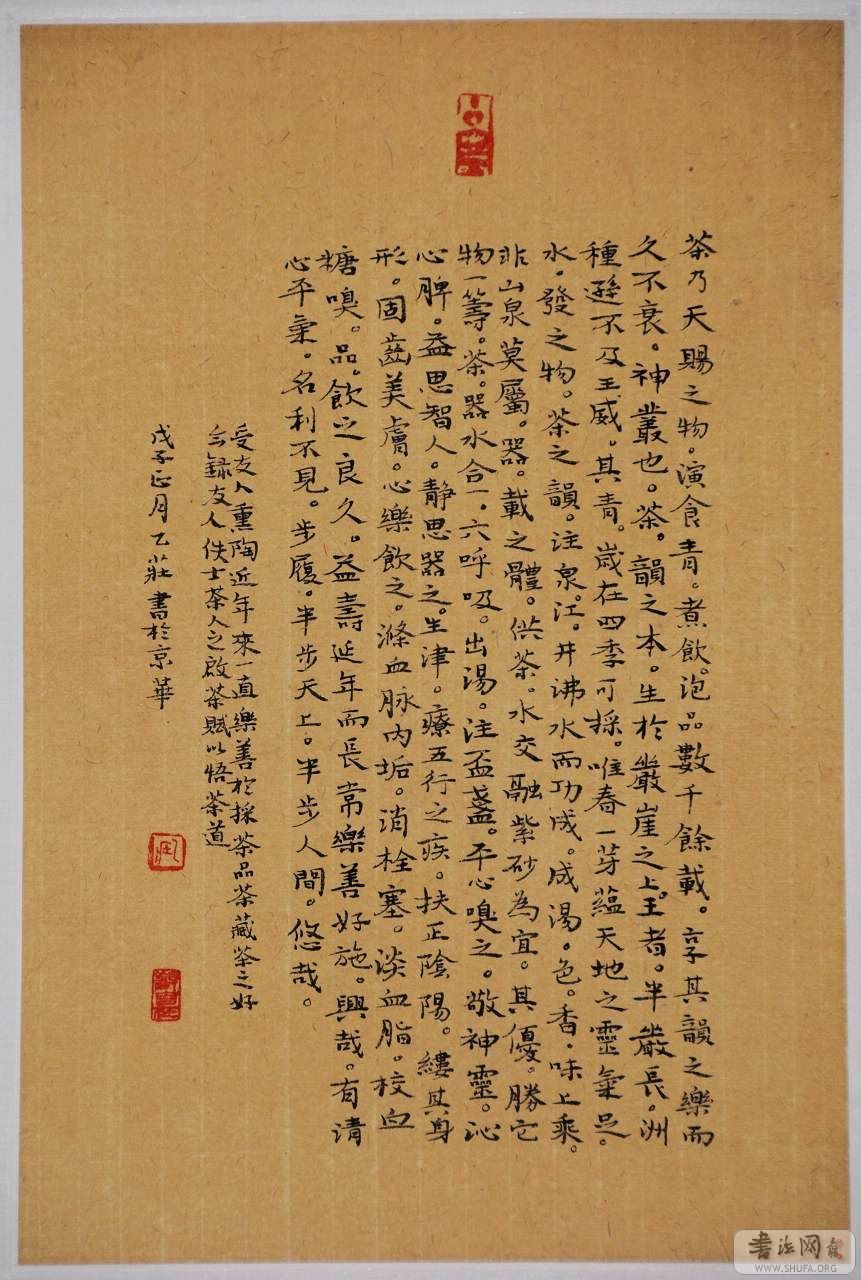 茶乃天賜之物。演食青。煮飲。泡品數千餘載。享其韻之樂而
久不衰。神叢也。茶。韻之本。生於巖崖之上。王者。半巖長。洲
種遜不及王威。其青。歲在四季可採。唯春一芽蘊天地之靈氣足。
水。發之物。茶之韻。注泉。江。井沸水而功成。成湯。色。香。味上乘。
非山泉莫屬。器。載之體。供茶。水交融紫砂為宜。其優。勝它
物一籌。茶。器水合一。六呼吸。出湯。注盃盞。平心嗅之。敬神靈。沁
心脾。益思智人。靜思器之。生津。療五行之疾。扶正陰陽。縷其身
形。固齒美膚。心樂飲之。滌血脉內垢。消栓塞。淡血脂。校血
糖嗅。品。飲之良久。益壽延年而長常樂善好施。興哉。有請
心平氣。名利不見。步履。半步天上。半步人間。悠哉。
受友人熏陶近年來一直樂善於採茶品茶藏茶之好
今録友人佚士茶人之啟茶賦以悟茶道
戊子正月乙莊書於京華
書法网
WWW.SHUFA.ORG